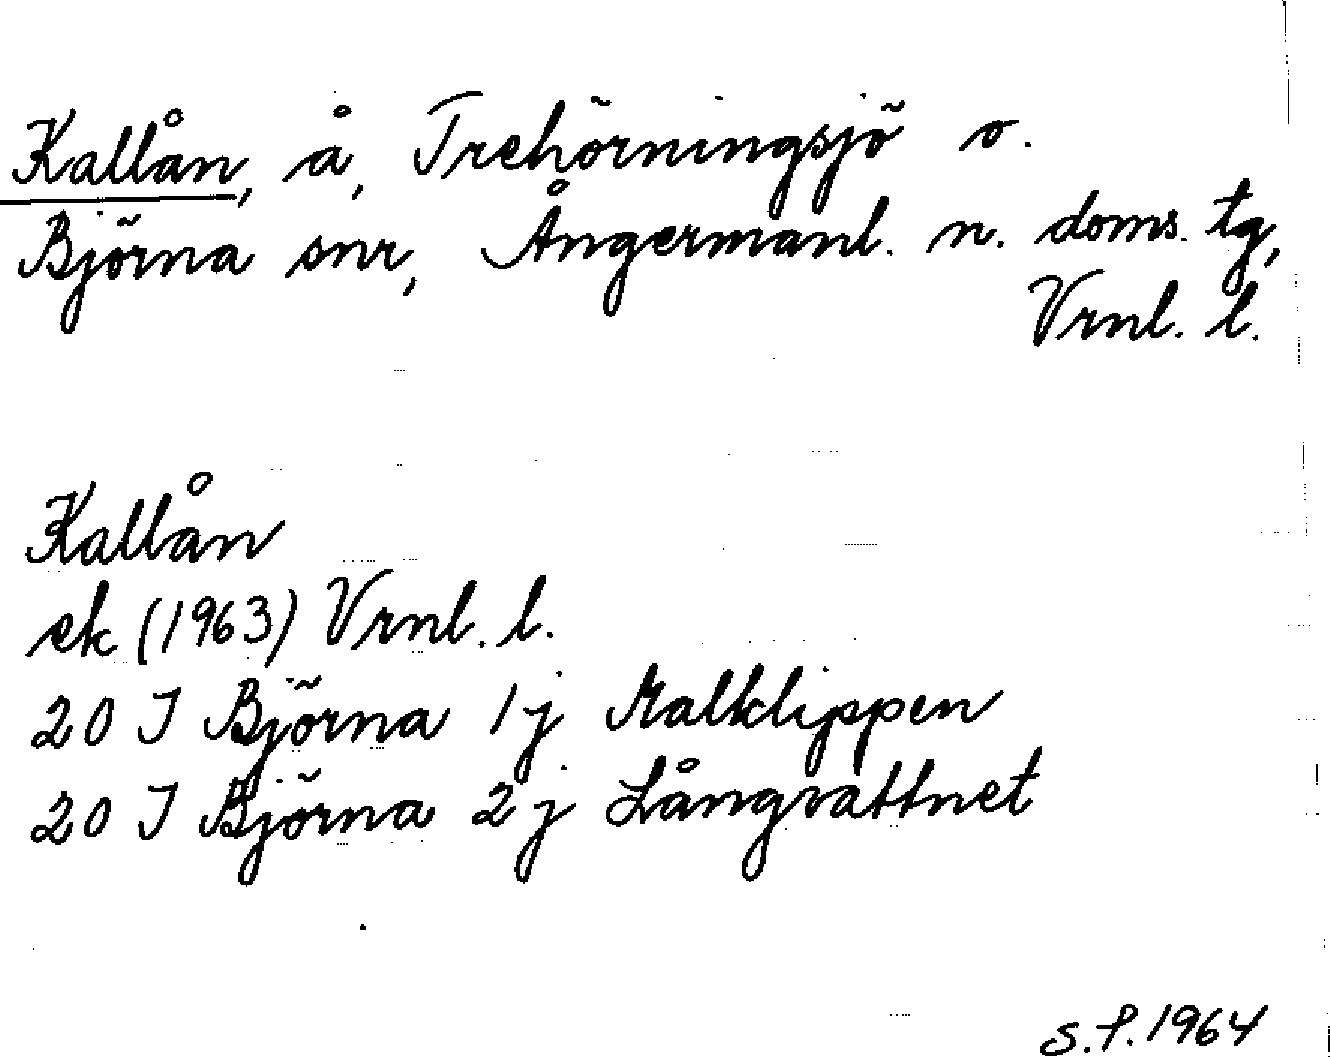 Kallån, å, Trehörningsjö o.
Björna snr, Ångermanl. n. doms. tg,
Vrnl. l.
Kallån
ek (1963) Vrnl. l.
20 I Björna 1 j Malklippen
20 I Björna 2 j Långvattnet
S.P. 1964